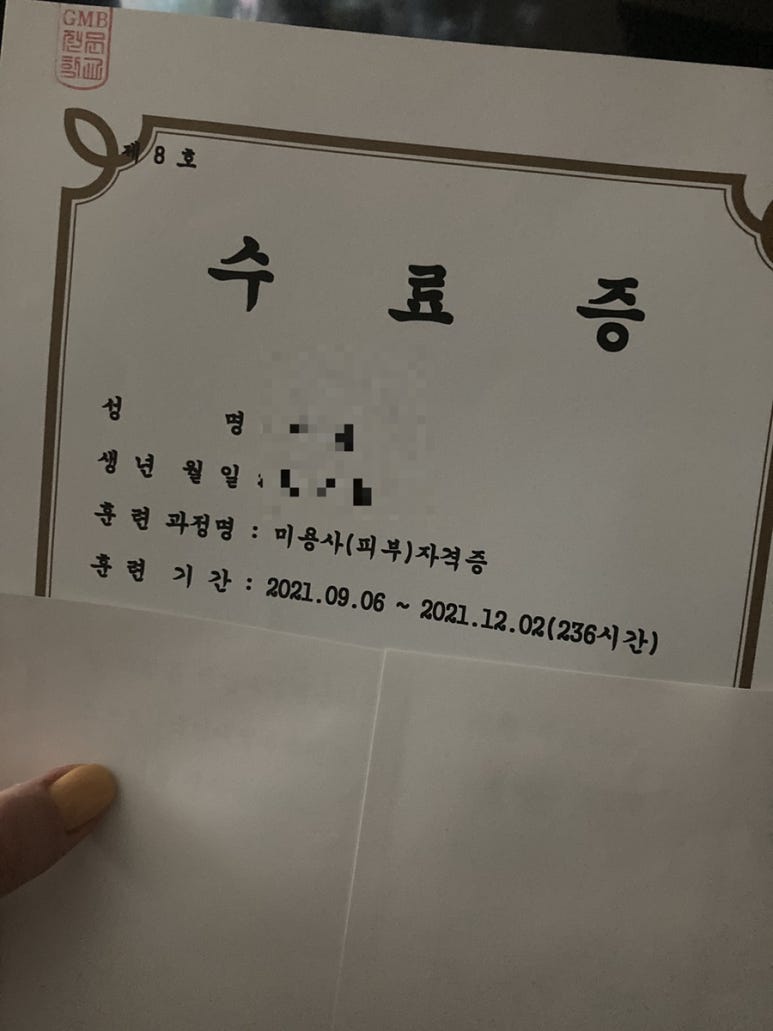 GMB
전문
학교
제 8 호
수 료 증
성 명 :
생 년 월 일 :
훈 련 과정명 : 미용사(피부)자격증
훈 련 기 간 : 2021.09.06 ~ 2021.12.02(236시간)